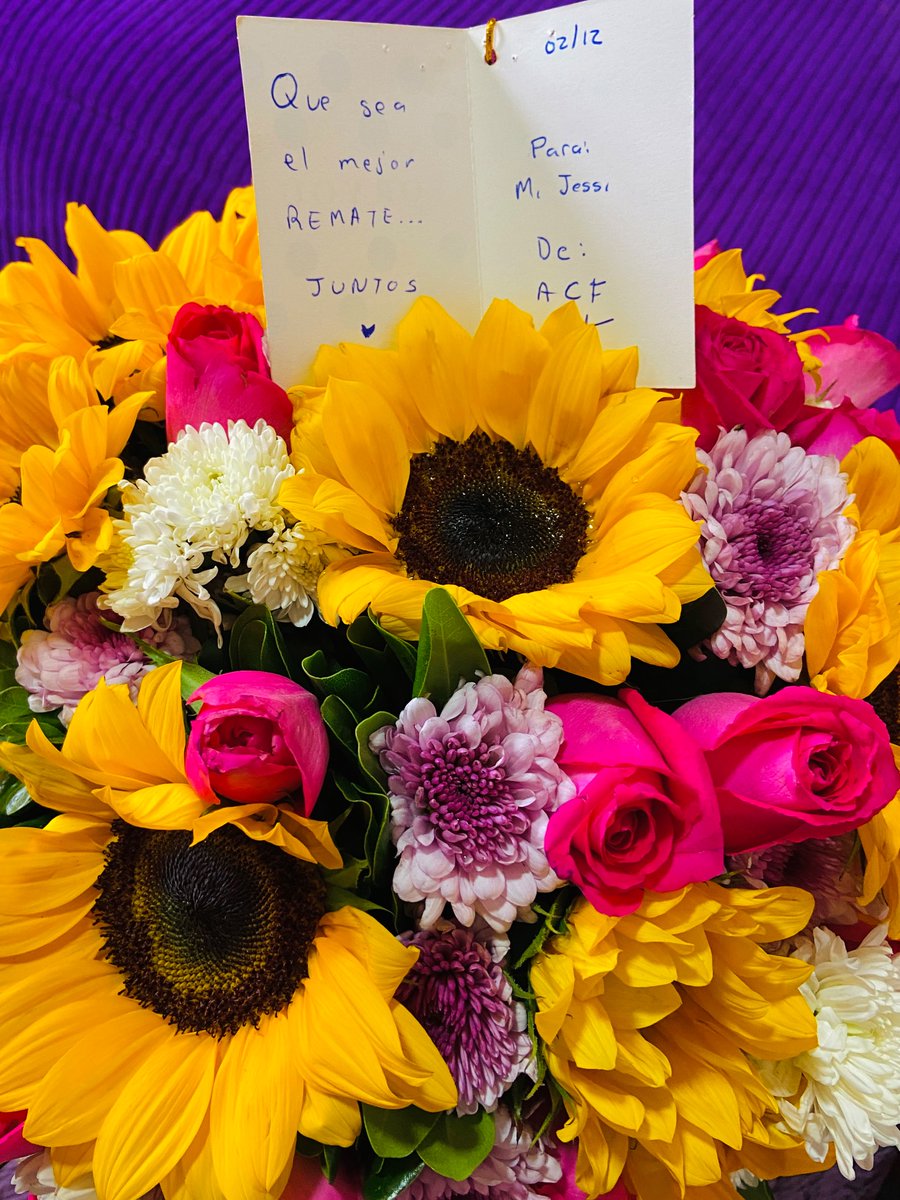 Que sea
el mejor
REMATE...
JUNTOS
02/12
Para:
Mi Jessi
De:
ACF